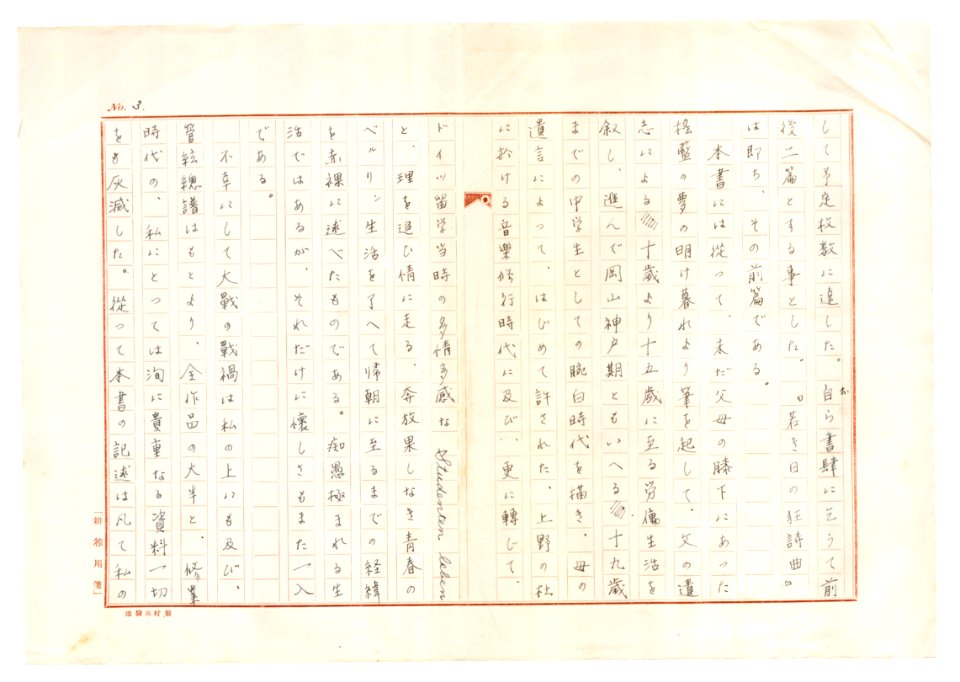 No. 3.
して予定枚数に達した。自ら書肆に乞うて前
お
後二篇とする事とした。『若き日の狂詩曲』
は即ち、その前篇である。
本書には従って、未だ父母の膝下にあった
揺籃の夢の明け暮れより筆を起して、父の遺
志による十歳より十五歳に至る労働生活を
叙し、進んで岡山神戸期ともいへる十九歳
までの中学生としての腕白時代を描き、母の
遺言によって、はじめて許された、上野の杜
に於ける音楽修行時代に及び、更に転じて、
ドイツ留学当時の多情多感な Studenten leben
と、理を追ひ情に走る、奔放果しなき青春の
ベルリン生活を了へて帰朝に至るまでの経緯
を赤裸に述べたものである。痴愚極まれる生
活ではあるが、それだけに懐しさもまた一入
である。
不幸にして大戰の戰禍は私の上にも及び、
管絃總譜はもとより、全作品の大半と、修業
時代の、私にとっては洵に貴重なる資料一切
をも灰滅した。從って本書の記述は凡て私の